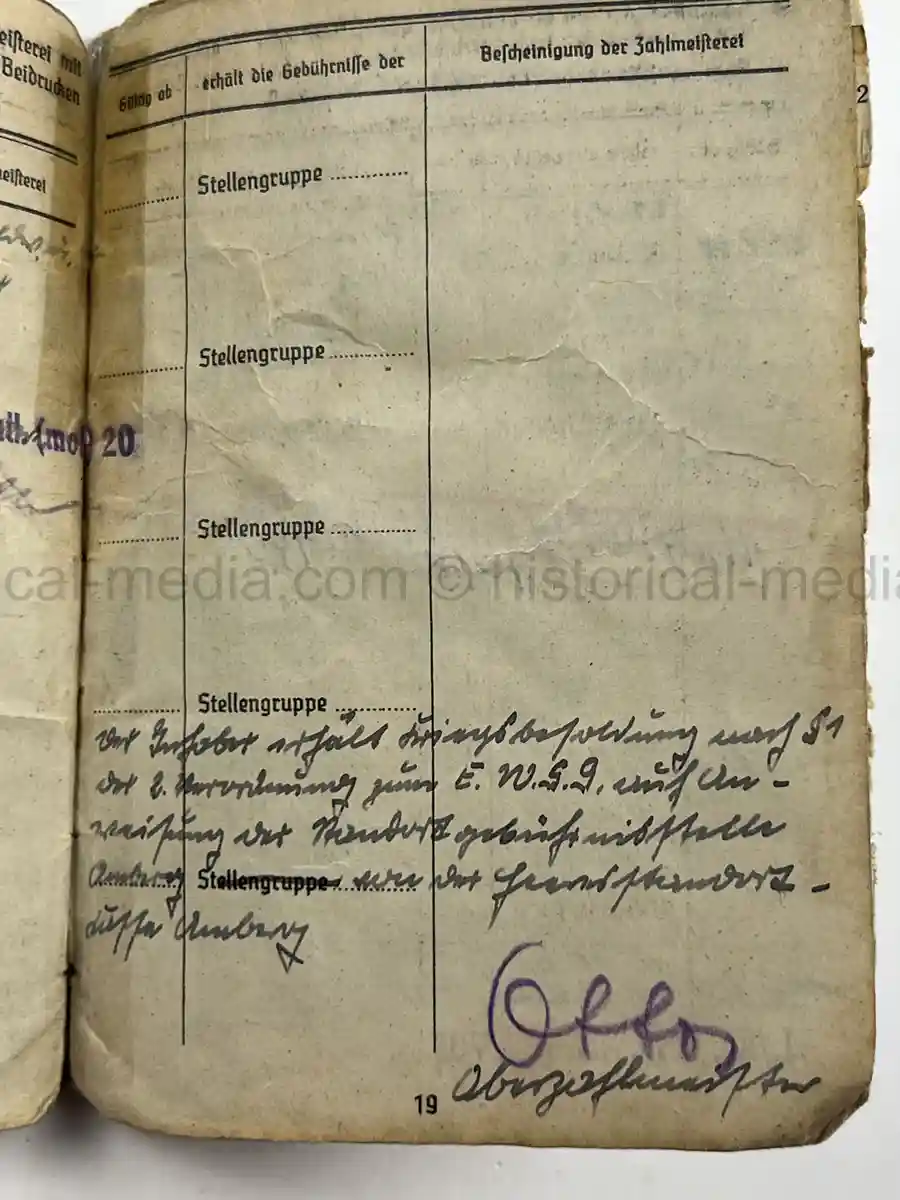 eisterei mit
Beidrucken
eisterei
(mot) 20
Gültig ab
erhält die Gebührnisse der
Bescheinigung der Zahlmeisterei
2
Stellengruppe ..........
Stellengruppe ..........
Stellengruppe ..........
cal-media.com © historical-media
Stellengruppe ..........
der Inhaber erhält Kriegsbesoldung nach § 1
der 2. Verordnung zum E. W. G. G. auf An-
weisung der Standortgebührnisstelle
Amberg Stellengruppe von der Heeresstandort-
kasse Amberg
Otto
Oberzahlmeister
19